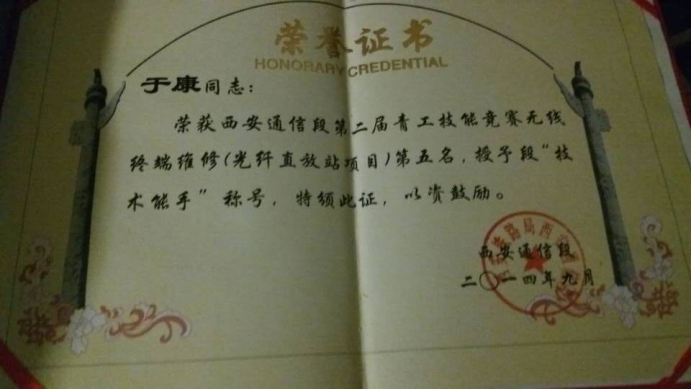 荣誉证书
HONORARY CREDENTIAL
于康同志：
荣获西安通信段第二届青工技能竞赛无线
终端维修(光纤直放站项目)第五名，授予段“技
术能手”称号，特颁此证，以资鼓励。
西安通信段
二〇一四年九月